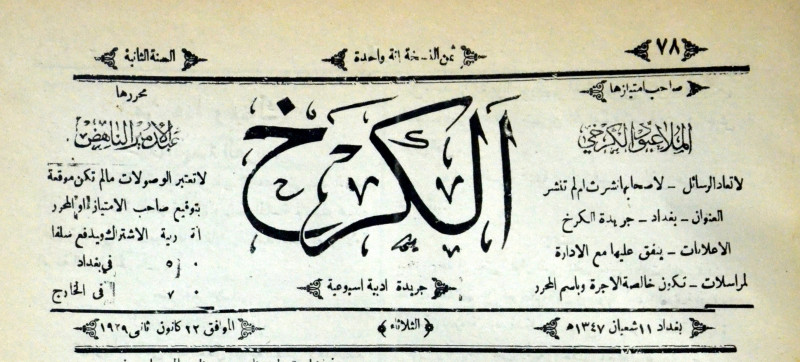 ٧٨
ثمن النسخة انة واحدة
السنة الثانية
صاحب امتيازها
الملا عبود الكرخي
لا تعاد الرسائل – لاصحابها نشرت ام لم تنشر
العنوان – بغداد – جريدة الكرخ
الاعلانات – يتفق عليها مع الادارة
لمراسلات – تكون خالصة الاجرة وباسم المحرر
الكرخ
جريدة ادبية اسبوعية
محررها
عبد الامير الناهض
لا تعتبر الوصولات مالم تكن موقعة
بتوقيع صاحب الامتياز او المحرر
ربية الاشتراك ويدفع سلفا
في بغداد
٧٠ في الخارج
بغداد ١١ شعبان ١٣٤٧ ه
الثلاثاء
الموافق ٢٢ كانون ثانى ١٩٢٩